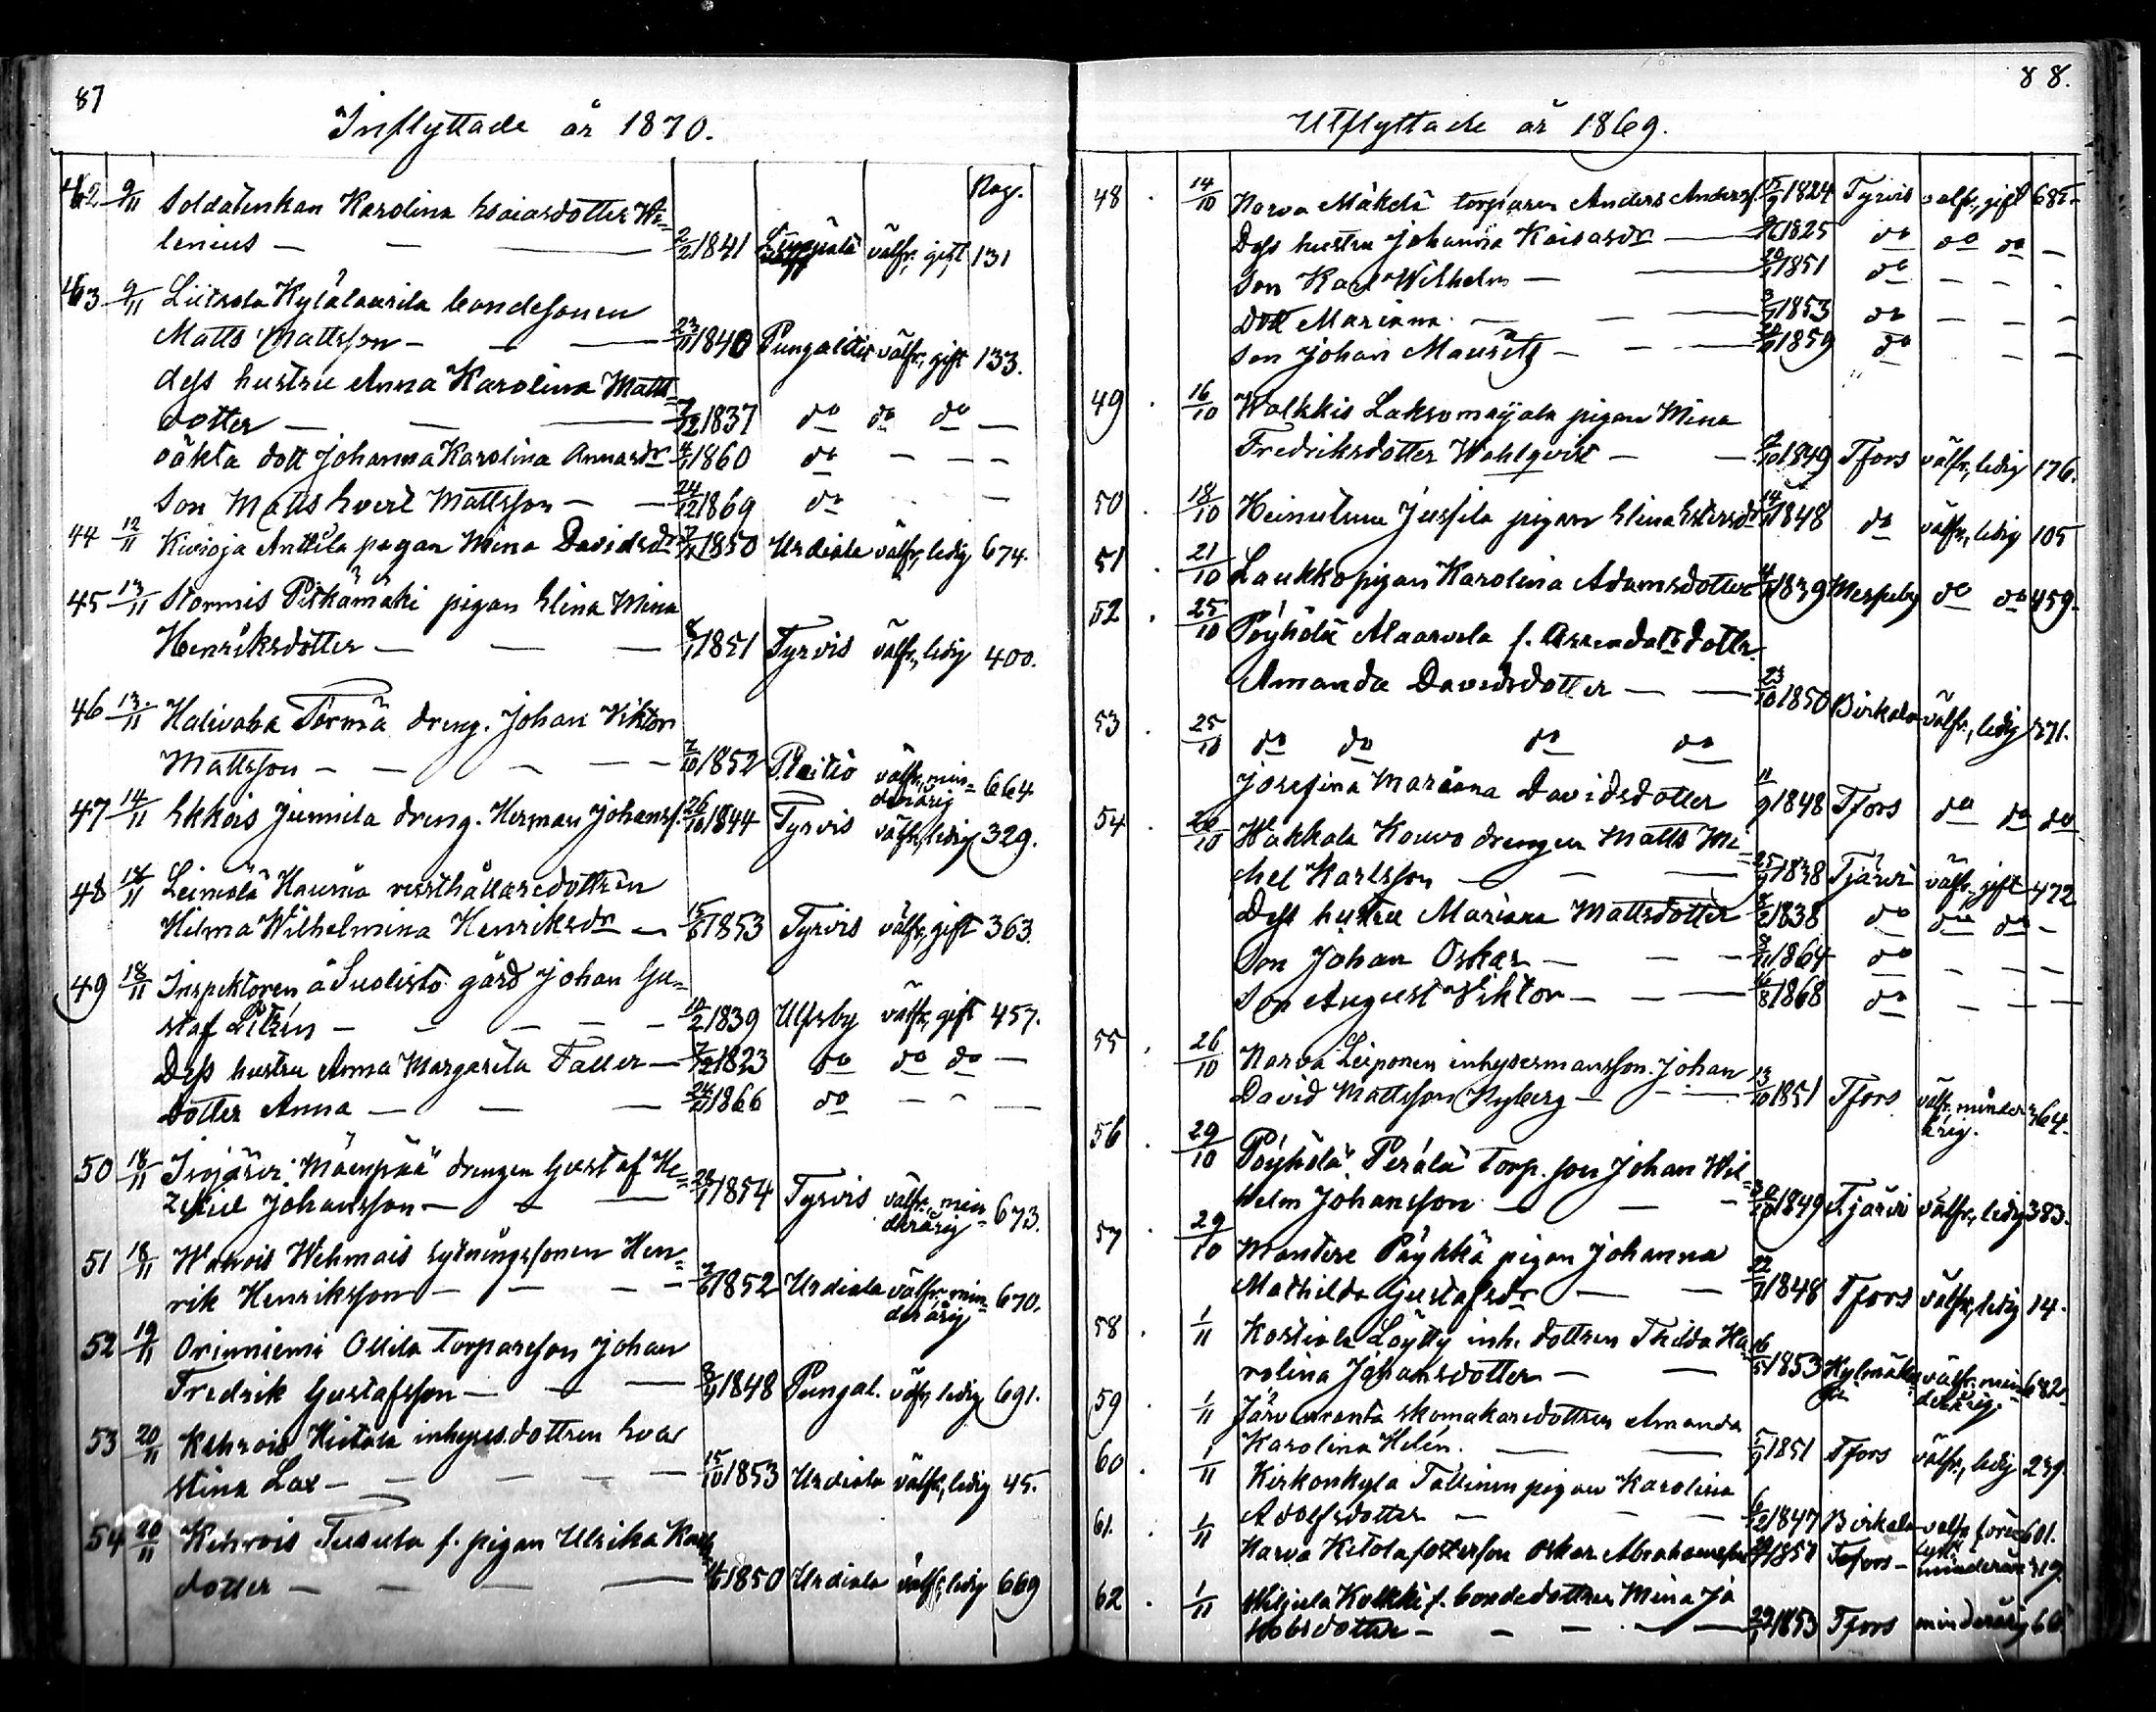 87
Inflyttade år 1870.
Pag.
42 9/11 Soldatenkan Karolina Esaiasdotter We=
lenius — — — 2/2 1841 välfr., gift 131
43 9/11 Liitsola Kylälaurila bondesonen
Matts Mattsson — — — 23/11 1840 Pungalitio välfr., gift 133.
dess hustru Anna Karolina Matts=
dotter — — — 1837 do do do —
oäkta dott Johanna Karolina Annasdr 1860 do — — —
Son Matts Evert Mattsson — — 24/12 1869 do — —
44 12/11 Kivioja Anttila pigan Mina Davidsdr 1850 Urdiala välfr., ledig 674.
45 13/11 Stormis Pitkämäki pigan Elina Mina
Henriksdotter — — — 1851 Tyrvis välfr., ledig 400.
46 13/11 Halivaha Törmä dreng. Johan Viktor
Mattsson — — — — 7/10 1852 välfr., min=
derårig 664
47 14/11 Ekkois Junnila dreng. Herman Johanss. 26/10 1844 Tyrvis välfr., ledig 329.
48 14/11 Leiniälä Haunia rusthållaredottren
Hilma Wilhelmina Henriksdr — 15/6 1853 Tyrvis välfr., gift 363.
49 18/11 Inspektoren å Suolisto gård Johan Gu=
staf — — — — 10/2 1839 Ulfsby välfr., gift 457.
Dess hustru Anna Margareta Faller — 1823 do do do —
Dotter Anna — — — 1866 do — — —
50 18/11 Isojärvi Mäenpää drengen Gustaf He=
zekiel Johansson — — — 1854 Tyrvis välfr., min=
derårig 673.
51 18/11 Wahois Wehmais sytningssonen Hen=
rik Henriksson — — — — 1852 Urdiala välfr., min=
derårig 670.
52 19/11 Orinniemi Ollila torparesson Johan
Fredrik Gustafsson — — — 3/9 1848 Pungal. välfr., ledig 691.
53 20/11 Kehrois Hietala inhyses.dottren Eva
Stina Lax — — — — 15/10 1853 Urdiala välfr., ledig 45.
54 20/11 Kehrois Tusula f. pigan Ulrika Karls
dotter — — — — 1850 Urdiala välfr., ledig 669
88.
Utflyttade år 1869.
48 . 14/10 Narva Mäkelä torparen Anders Anderss. 1824 Tyrvis välfr., gift 685.
Dess hustru Johanna Kaisasdr — 1825 do do do —
Son Karl Wilhelm — — 1851 do — — -
Dott Mariana — — — 1853 do — — —
Son Johan Mauritz — — — 1859 do — —
49 . 16/10 Walkkis Laksomaijala pigan Mina
Fredriksdotter Wahlqvist — — 1849 Tfors välfr., ledig 176.
50 . 18/10 Heinulune Jussila pigan Elina Estersdr 1848 do välfr., ledig 105
51 . 21/10 Laukko pigan Karolina Adamsdotter 1839 Messuby do do 459.
52 . 25/10 Pöyhölä Alaarvela f. Arrendatsdottr.
Amanda Davidsdotter — — 23/10 1850 Birkala välfr., ledig 571.
53 25/10 do do do do
Josefina Mariana Davidsdotter 11/9 1848 Tfors do do do
54 . 26/10 Wakkala Kouvo drengen Matts Mi=
chel Karlsson — — — 1838 Tjärvi välfr., gift 472
Dess hustru Mariana Mattsdotter 1838 do do do —
Son Johan Oskar — — — 1864 do — — —
Son August Viktor — — — 1868 do — — —
55 . 26/10 Narva Leiponen inhysermansson. Johan
David Mattsson Nyberg — — 13/10 1851 Tfors välfr. minder
årig. 364.
56 . 29/10 Pöyhölä Perälä torp. son Johan Wil=
helm Johansson — — — 1849 Tjärvi välfr., ledig 383.
57 . 29/10 Mantere Päykkä pigan Johanna
Mathilda Gustafsdr — — 1848 Tfors välfr., ledig 14.
58 . 1/11 Kostiala Löytty inh. dottren Thilda Ka=
rolina Johansdotter — — 1853 Kylmäkoski välfr. min
derårig. 682
59 . 1/11 Järvenranta skomakaredottren Amanda
Karolina Helén. — — 5/9 1851 Tfors välfr., ledig 239.
60 . 1/11 Kirkonkylä Tallinen pigan Karolina
Adolfsdotter — — — 6/12 1847 Birkala välfr. 601.
61. . 1/11 Narva Ketola fosterson Oskar Abrahamsson 1857 Tfors — minderår. 319.
62 . 1/11 f. bondedottren Mina Ja
kobsdotter — — — — 1853 Tfors minderårig 66